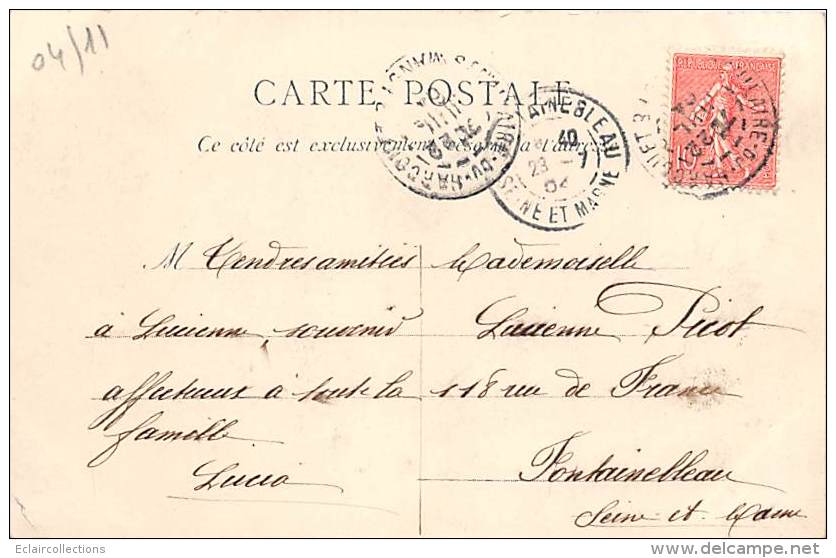 04/11
CARTE POSTALE
Ce côté est exclusivement réservé à l'adresse
REPUBLIQUE FRANÇAISE
FONTAINEBLEAU
SEINE ET MARNE
M Tendres amitiés
à Lucienne, souvenir
affectueux à toute la
famille
Lucia
Mademoiselle
Lucienne Picot
118 rue de France
Fontainebleau
Seine-et-Marne
Eclaircollections
©delcampe.net